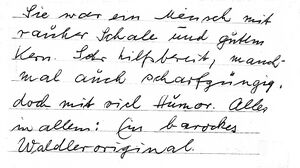 Sie war ein Mensch mit
rauher Schale und gutem
Kern. Sehr hilfsbereit, manch-
mal auch scharfzüngig,
doch mit viel Humor. Alles
in allem: Ein barockes
Waldleroriginal.